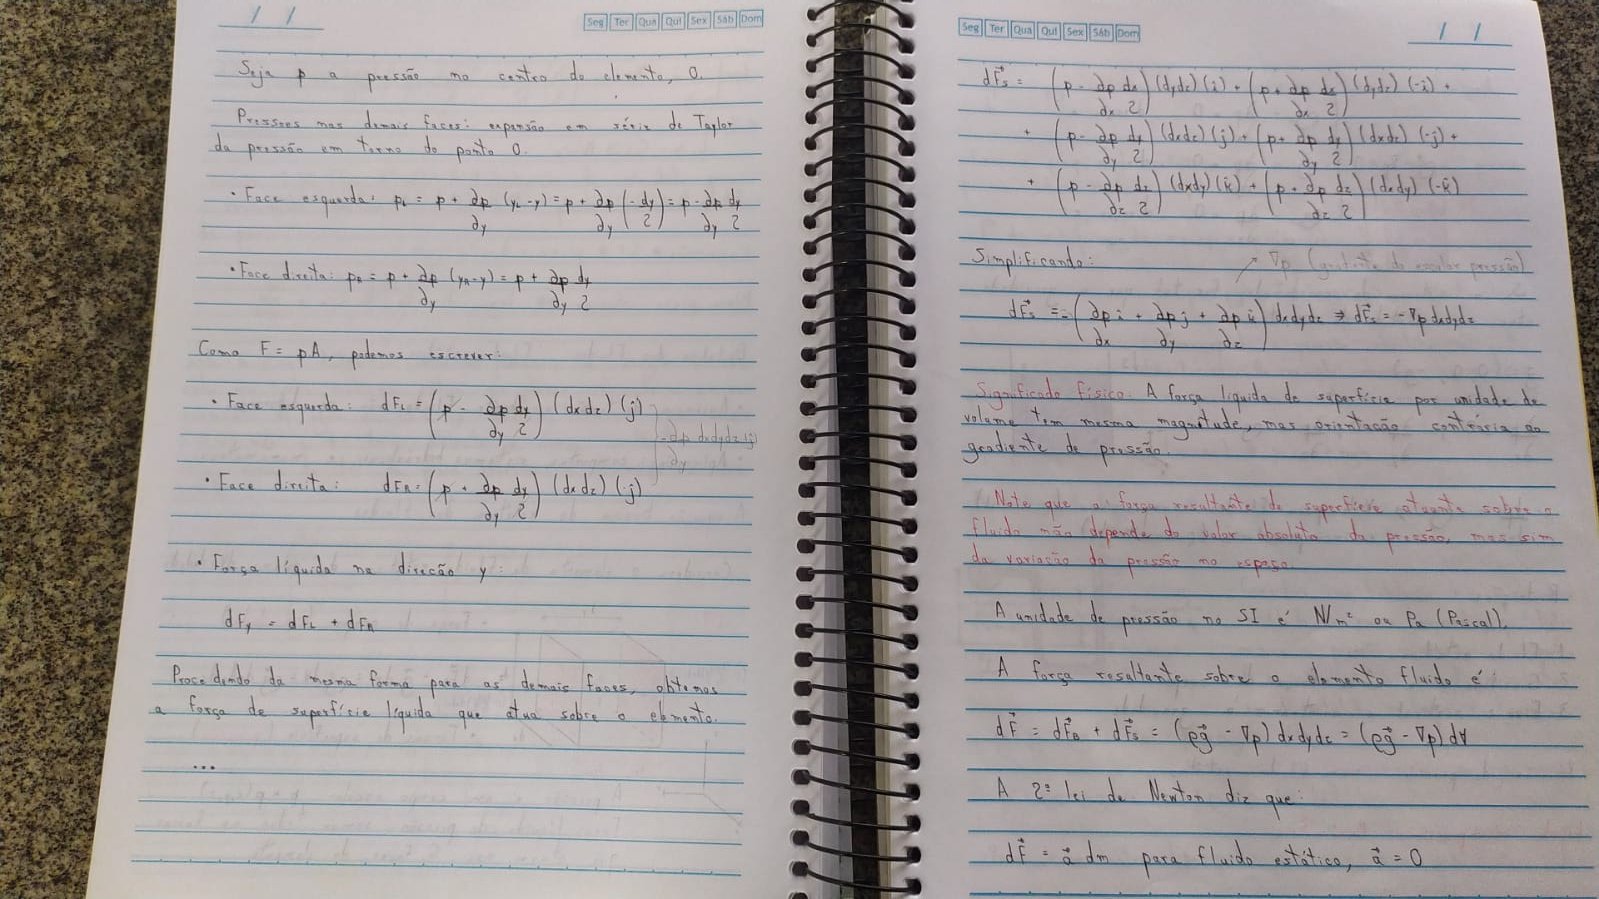 / /
Seg Ter Qua Qui Sex Sáb Dom
Seja p a pressão no centro do elemento, O.
Pressões nas demais faces: expansão em série de Taylor
da pressão em torno do ponto O.
• Face esquerda: pL = p + ∂p/∂y (yL - y) = p + ∂p/∂y (-dy/2) = p - ∂p/∂y dy/2
• Face direita: pR = p + ∂p/∂y (yR - y) = p + ∂p/∂y dy/2
Como F = pA, podemos escrever:
• Face esquerda: dFL = (p - ∂p/∂y dy/2) (dxdz) (ĵ)
-∂p/∂y dxdydz (ĵ)
• Face direita: dFR = (p + ∂p/∂y dy/2) (dxdz) (-ĵ)
• Força líquida na direção y:
dFy = dFL + dFR
Procedendo da mesma forma para as demais faces, obtemos
a força de superfície líquida que atua sobre o elemento.
...
Seg Ter Qua Qui Sex Sáb Dom
/ /
dF⃗s = (p - ∂p/∂x dx/2) (dydz) (î) + (p + ∂p/∂x dx/2) (dydz) (-î) +
+ (p - ∂p/∂y dy/2) (dxdz) (ĵ) + (p + ∂p/∂y dy/2) (dxdz) (-ĵ) +
+ (p - ∂p/∂z dz/2) (dxdy) (k̂) + (p + ∂p/∂z dz/2) (dxdy) (-k̂)
Simplificando:
∇p (gradiente do escalar pressão)
dF⃗s = -(∂p/∂x î + ∂p/∂y ĵ + ∂p/∂z k̂) dxdydz ⇒ dF⃗s = -∇p dxdydz
Significado físico: A força líquida de superfície por unidade de
volume tem mesma magnitude, mas orientação contrária ao
gradiente de pressão.
Note que a força resultante de superfície atuante sobre o
fluido não depende do valor absoluto da pressão, mas sim
da variação da pressão no espaço.
A unidade de pressão no SI é N/m² ou Pa (Pascal).
A força resultante sobre o elemento fluido é:
dF⃗ = dF⃗B + dF⃗s = (ρg⃗ - ∇p) dxdydz = (ρg⃗ - ∇p) dV
A 2ª lei de Newton diz que:
dF⃗ = a⃗ dm para fluido estático, a⃗ = 0